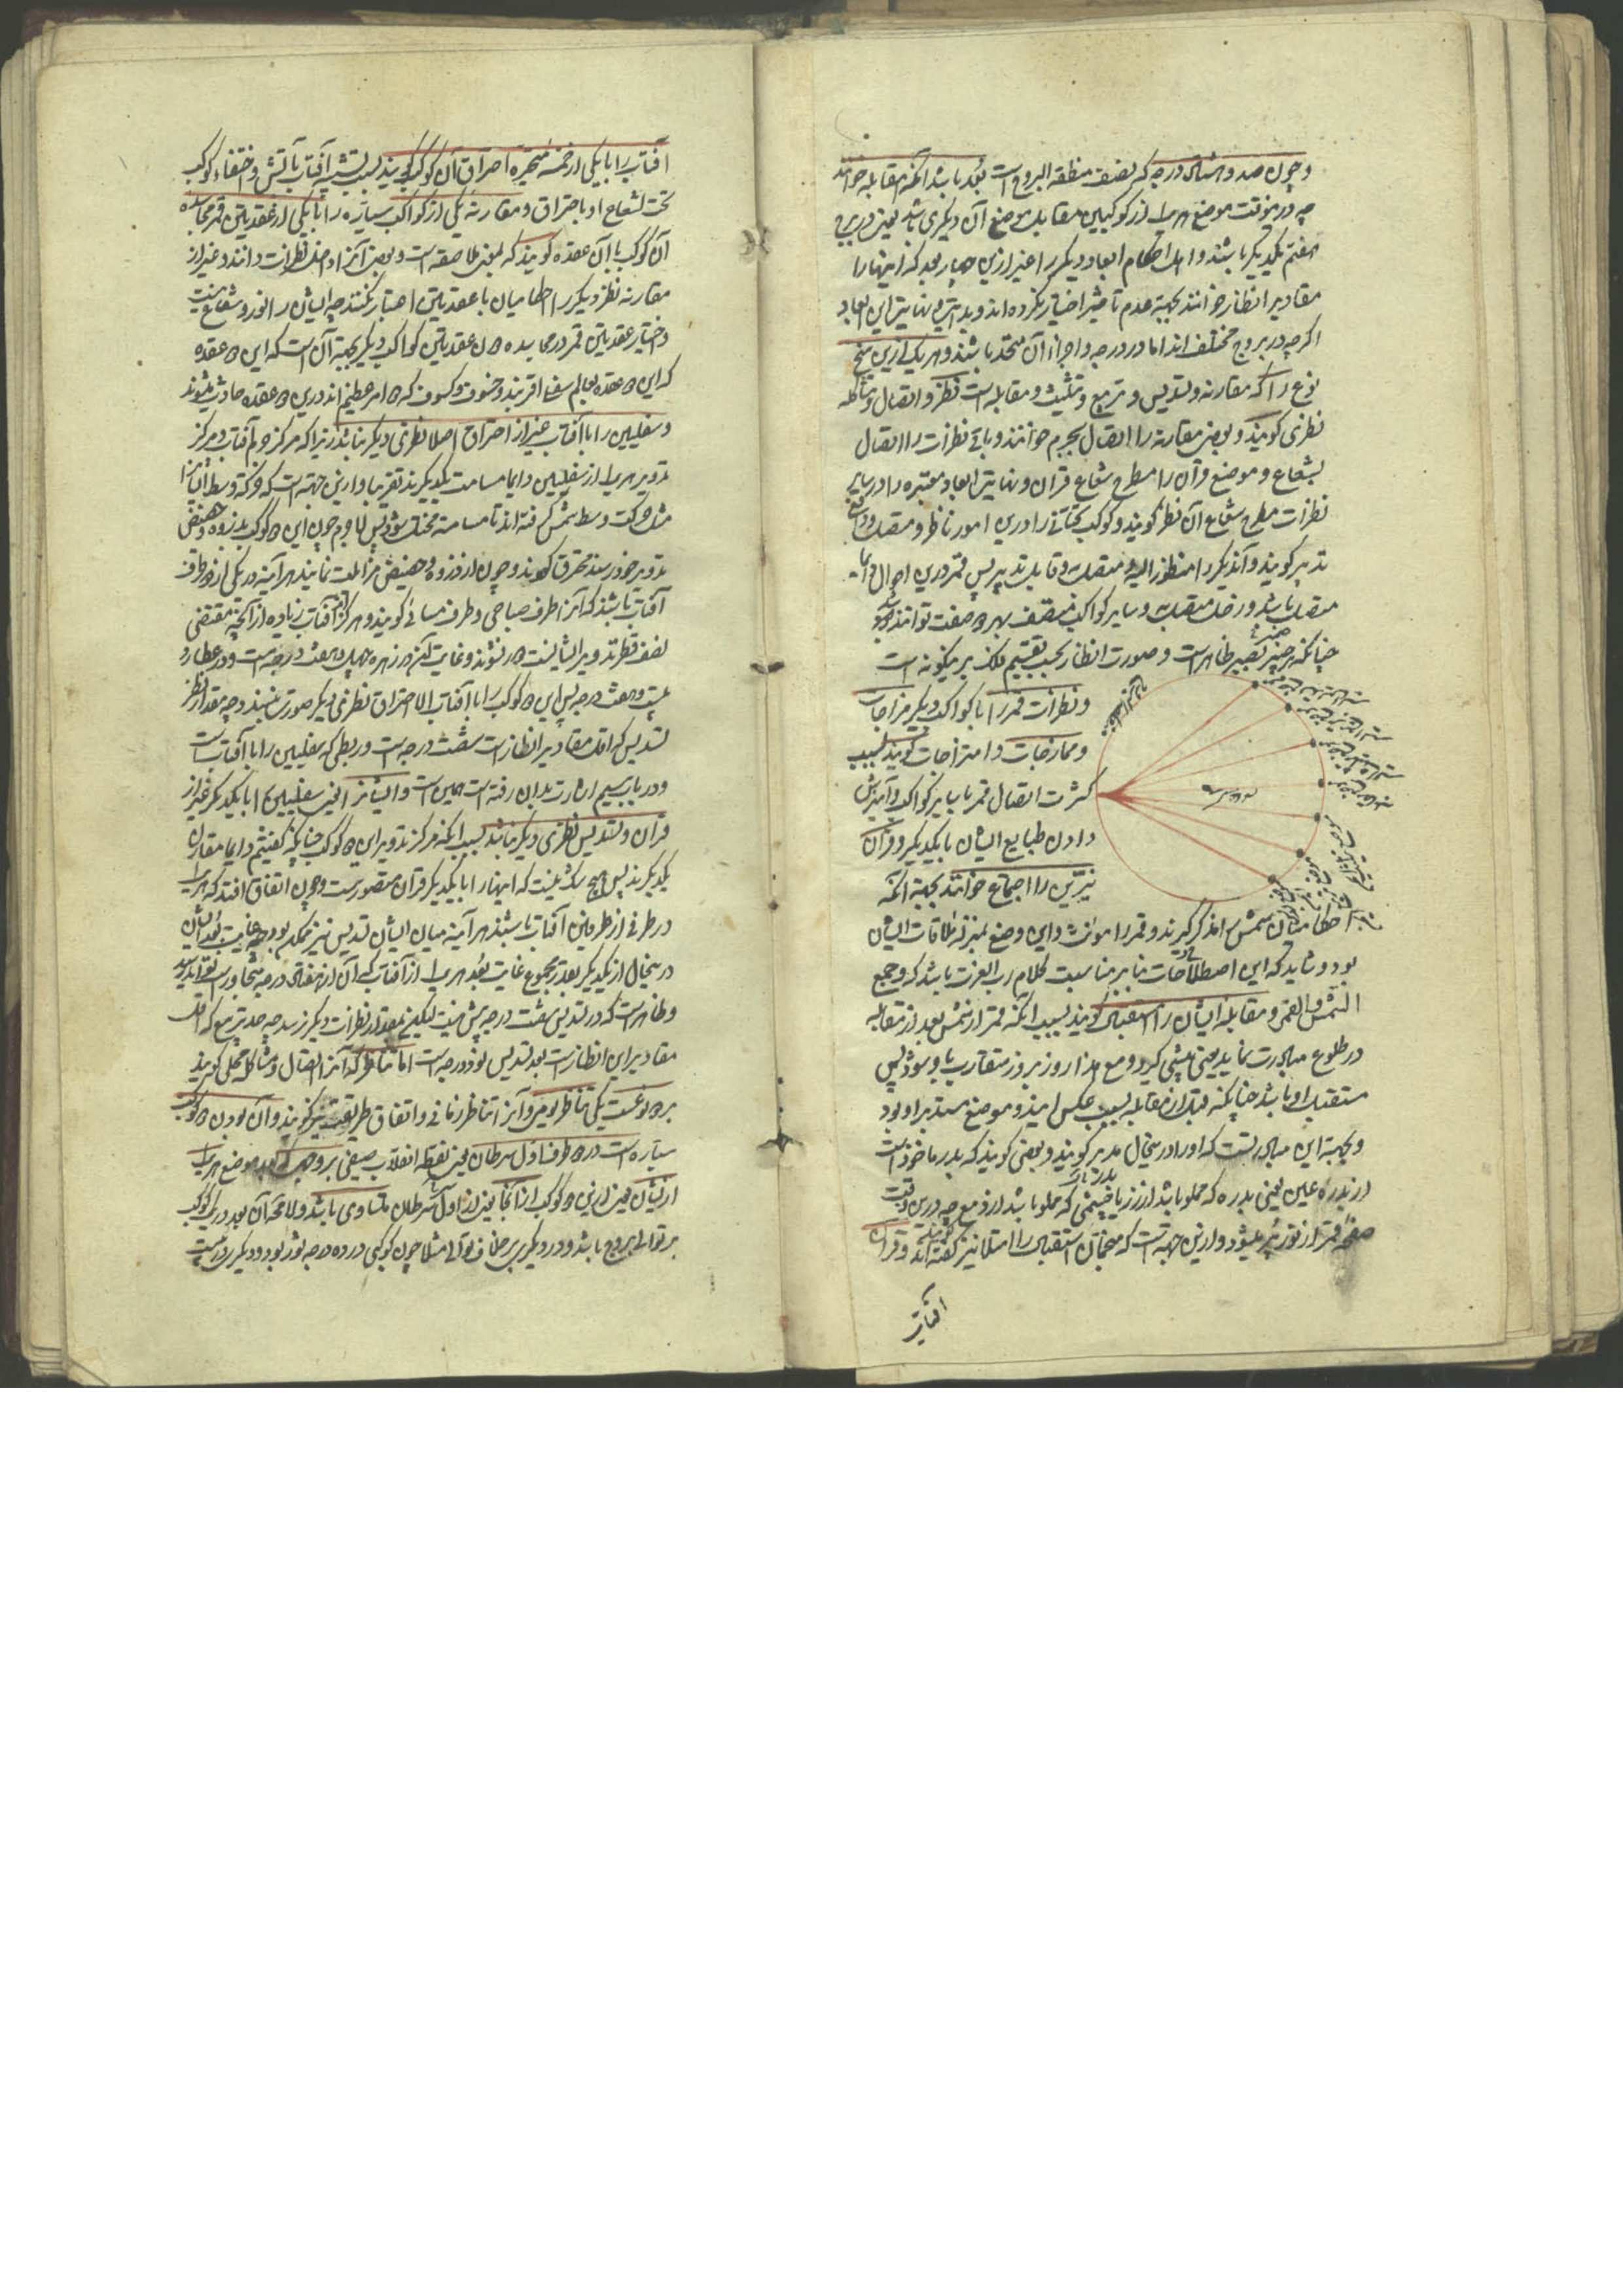 و چون صد و هشتاد درجه که نصف منطقة البروج است بعد باشد آنکه مقابله خوانند
چه درینوقت موضع هر یک از کوکبین مقابل موضع آن دیگری باشد یعنی در برج
هفتم یکدیگر باشند و اهل احکام ابعاد دیگر را غیر ازین چهار بعد که اینها را
مقادیر انظار خوانند بجهة عدم تاثیر اختیار نکرده‌اند و بدایت و نهایت این ابعاد
اگرچه در بروج مختلف‌اند اما در درجه و اجزاء آن متحد باشند و هر یک ازین پنج
نوع را که مقارنه و تسدیس و تربیع و تثلیث و مقابله است نظر و اتصال و مشاکله
نظری گویند و بعضی مقارنه را اتصال بجرم خوانند و باقی نظرات را اتصال
بشعاع و موضع قرآن را مطرح شعاع قرآن و نهایت ابعاد معتبره را در سایر
نظرات مطرح شعاع آن نظر گویند و کوکب تحتانی را درین امور ناظر و متصل و دافع
تدبیر گویند و آندیگر را منظور الیه و متصل به و قابل تدبیر پس قمر درین احوال دایما
متصل باشد و زحل متصل به و سایر کواکب متصف بهر دو صفت توانند بود
چنانکه بر ضمیر بصیر ظاهر است و صورت انظار بحسب تقسیم فلک برینگونه است
و نظرات قمر را با کواکب دیگر مزاجات
و ممازجات و امتزاجات گویند بسبب
کثرت اتصال قمر با سایر کواکب و آمیزش
دادن طبایع ایشان با یکدیگر و قرآن
نیرین را اجتماع خوانند بجهة آنکه
احکامیان شمس را مذکر گیرند و قمر را مونث و این وضع بمنزله ملاقات ایشان
بود و شاید که این اصطلاحات بنا بر مناسبت کلام رب العزت باشد که و جمع
الشمس و القمر و مقابله ایشان را استقبال گویند بسبب آنکه قمر از شمس بعد از مقابله
در طلوع مبادرت نماید یعنی پیشی گیرد و مع هذا روز بروز متقارب باو میشود پس
مستقبل او باشد چنانکه قبل از مقابله بسبب عکس این وضع مستدبر او بود
و بجهة این مبادرتست که او را درینحال بدر گویند و بعضی گویند که بدر ماخوذ است
از بدره عین یعنی بدره که مملو باشد از زر یا چشمی که مملو باشد از دمع چه درین وقت
صفحه قمر از نور پر میشود و ازین جهة است که منجمان استقبال را امتلا نیز گفته‌اند و قرآن
آفتاب
آفتاب را با یکی از خمسه متحیره احتراق آن کوکب گویند بسبب تشبیه آفتاب بآتش و اختفاء کوکب
تحت الشعاع او باحتراق و مقارنه یکی از کواکب سیاره را با یکی از عقدتین قمر مجاسده
آن کوکب با آن عقده گویند که بمعنی ملاصقه است و بعضی آنرا داخل نظرات دانند و غیر از
مقارنه نظر دیگر را احکامیان با عقدتین اعتبار نکنند چه ایشان را نور و شعاع نیست
و اختیار عقدتین قمر در مجاسده نه عقدتین کواکب دیگر بجهة آن است که این دو عقده
که این دو عقده بعالم سفلی اقربند و خسوف و کسوف که دو امر عظیم‌اند درین دو عقده حادث میشوند
و سفلیین را با آفتاب غیر از احتراق اصلا نظری دیگر نباشد زیرا که مرکز جرم آفتاب و مرکز
تدویر هر یک از سفلیین دایما مسامت یکدیگرند تقریبا و ازین جهة است که حرکت وسط ایشان را
مثل حرکت وسط شمس گرفته‌اند تا مسامته مختل نشود پس لا جرم چون این دو کوکب بذروه و حضیض
تدویر خود رسند محترق گردند و چون از ذروه و حضیض مزایلت نمایند هر آینه در یکی از دو طرف
آفتاب باشند که آنرا طرف صباحی و طرف مسائی گویند و هرگز از آفتاب زیاده از آنچه مقتضی
نصف قطر تدویر ایشانست دور نشوند و غایت آن در زهره چهل و هفت درجه است و در عطارد
بیست و هفت درجه پس این دو کوکب را با آفتاب الا احتراق نظری دیگر صورت نبندد چه مقدار نظر
تسدیس که اقل مقادیر انظار است شصت درجه است و ربطی که سفلیین را با آفتاب است
و در باب سیم اشارت بدان رفته است همین است و ایضا سفلیین را با یکدیگر غیر از
قرآن و تسدیس نظری دیگر نباشد بسبب آنکه مرکز تدویر این دو کوکب چنانکه گفتیم دایما مقارن
یکدیگرند پس هیچ شک نیست که اینها را با یکدیگر قرآن متصور است و چون اتفاق افتد که هر یک
در طرفی از طرفین آفتاب باشند هر آینه میان ایشان تسدیس نیز ممکن بود چه غایت بعد ایشان
درینحال از یکدیگر بقدر مجموع غایت بعد هر یک از آفتاب که آن از هفتاد درجه متجاوز است
و ظاهر است که در تسدیس شصت درجه بیش نیست لیکن بمقدار نظرات دیگر نرسد چه حد تربیع که اقل
مقادیر این انظار است بعد تسدیس نود درجه است اما تناظر که آنرا اتصال و مشاکله محلی گویند
بر دو نوعست یکی تناظر یومی و آنرا تناظر زمانی و اتفاق طریقت نیز گویند و آن بودن دو کوکب
سیاره است در دو طرف اول سرطان یعنی نقطه انقلاب صیفی بر وجهی که بعد موضع هر یک
ازیشان یعنی ازین دو کوکب از آنجا یعنی از اول سرطان متساوی باشد و لا محاله آن بعد در یک کوکب
بر توالی بروج باشد و در دیگری بر خلاف توالی مثلا چون کوکبی در ده درجه ثور بود و دیگری در بیست